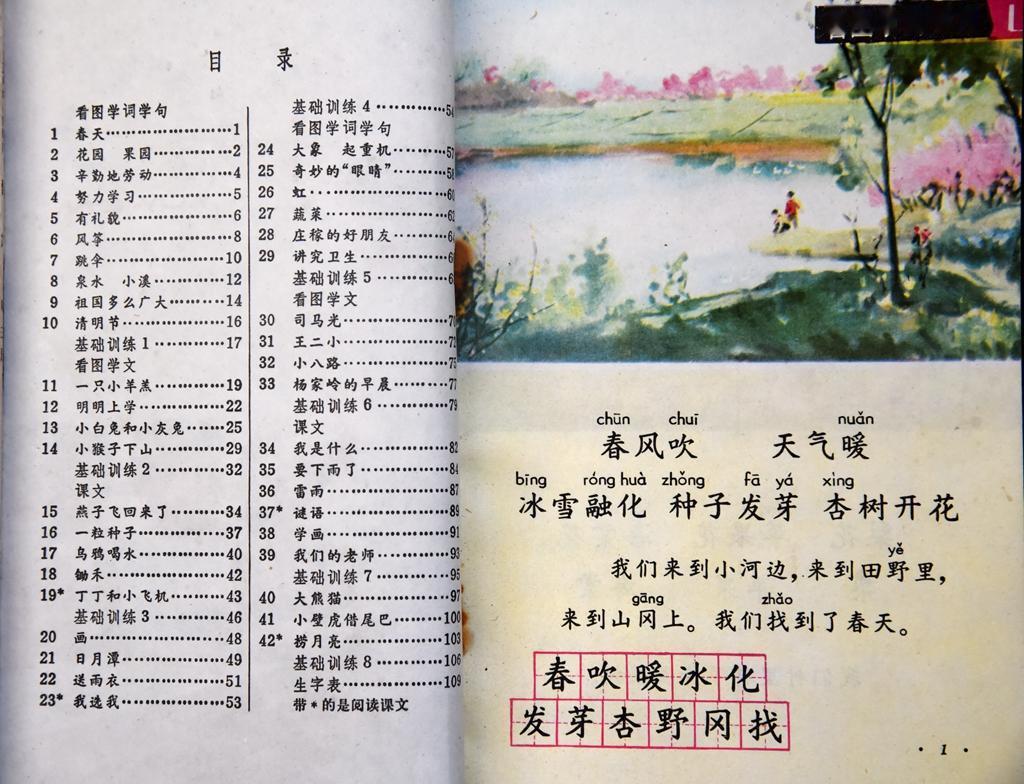 目 录
看图学词学句
1 春天……1
2 花园 果园……2
3 辛勤地劳动……4
4 努力学习……5
5 有礼貌……6
6 风筝……8
7 跳伞……10
8 泉水 小溪……12
9 祖国多么广大……14
10 清明节……16
基础训练1……17
看图学文
11 一只小羊羔……19
12 明明上学……22
13 小白兔和小灰兔……25
14 小猴子下山……29
基础训练2……32
课文
15 燕子飞回来了……34
16 一粒种子……37
17 乌鸦喝水……40
18 锄禾……42
19* 丁丁和小飞机……43
基础训练3……46
20 画……48
21 日月潭……49
22 送雨衣……51
23* 我选我……53
基础训练4……54
看图学词学句
24 大象 起重机……57
25 奇妙的“眼睛”……58
26 虹……60
27 蔬菜……62
28 庄稼的好朋友……6
29 讲究卫生……6
基础训练5……6
看图学文
30 司马光……70
31 王二小……72
32 小八路……75
33 杨家岭的早晨……77
基础训练6……79
课文
34 我是什么……82
35 要下雨了……84
36 雷雨……87
37* 谜语……89
38 学画……91
39 我们的老师……93
基础训练7……95
40 大熊猫……97
41 小壁虎借尾巴……100
42* 捞月亮……103
基础训练8……106
生字表……109
带*的是阅读课文
chūn chuī nuǎn
春风吹 天气暖
bīng róng huà zhǒng fā yá xìng
冰雪融化 种子发芽 杏树开花
yě
我们来到小河边，来到田野里，
gāng zhǎo
来到山冈上。我们找到了春天。
春吹暖冰化
发芽杏野冈找
· 1 ·